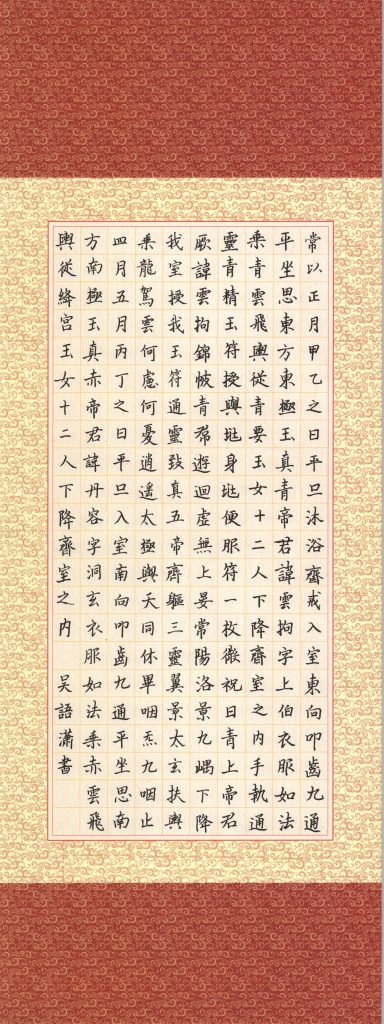 常以正月甲乙之日平旦沐浴齋戒入室東向叩齒九通
平坐思東方東極玉真青帝君諱雲拘字上伯衣服如法
乘青雲飛輿從青要玉女十二人下降齋室之内手執通
靈青精玉符授與玼身玼便服符一枚微祝曰青上帝君
厥諱雲拘錦帔青帬遊迴虛無上晏常陽洛景九嵎下降
我室授我玉符通靈致真五帝齊軀三靈翼景太玄扶輿
乘龍駕雲何慮何憂逍遙太極與天同休畢咽炁九咽止
四月五月丙丁之日平旦入室南向叩齒九通平坐思南
方南極玉真赤帝君諱丹容字洞玄衣服如法乘赤雲飛
輿從絳宮玉女十二人下降齋室之内 吴語瀟書